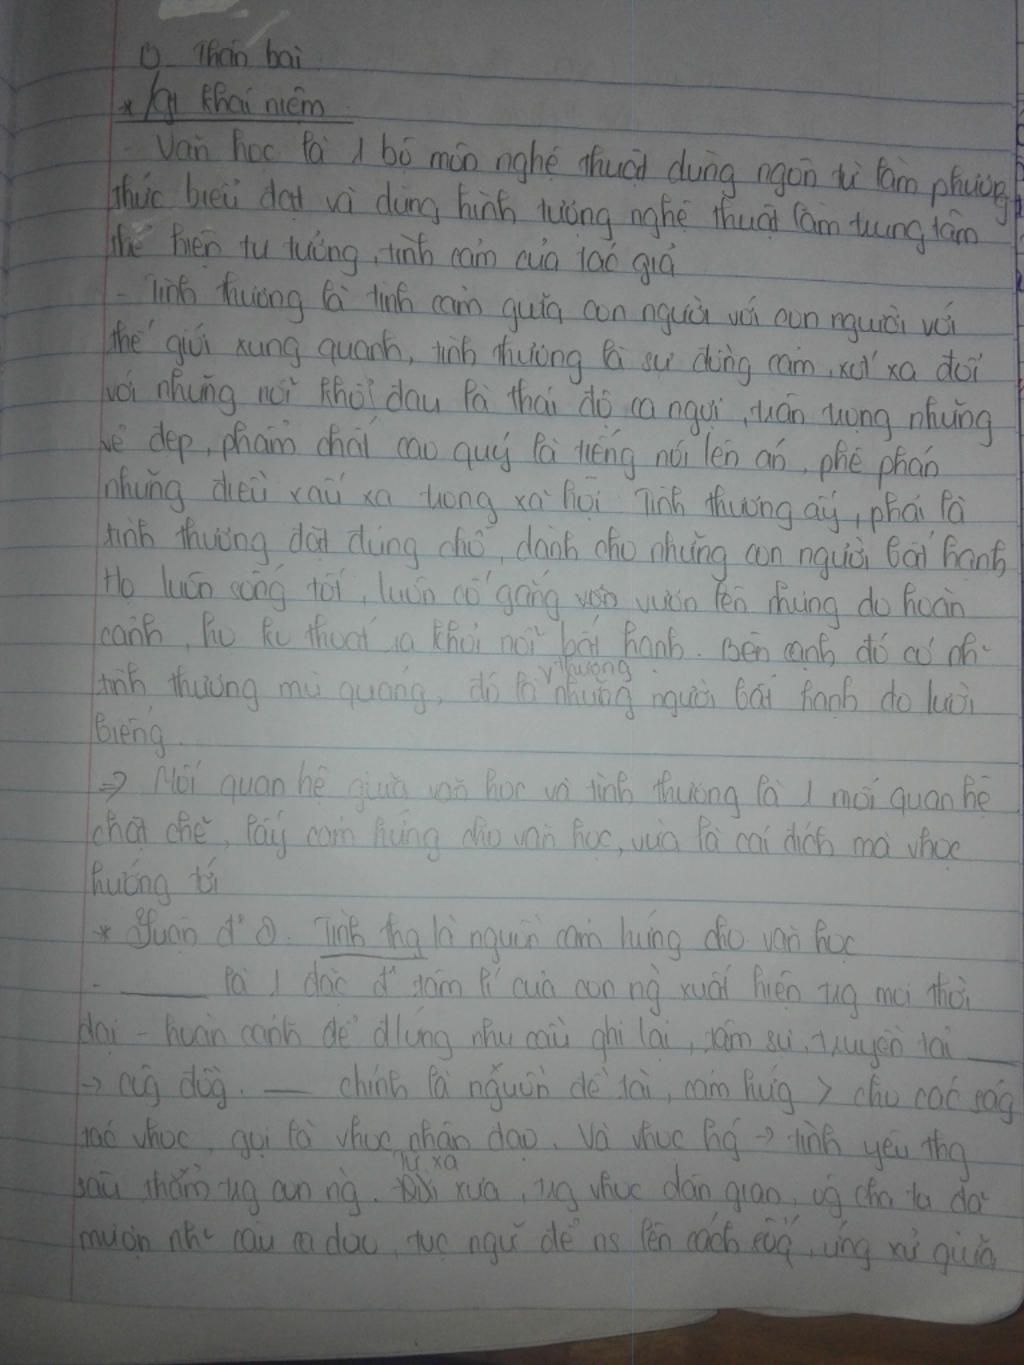 ② Thân bài
* /G/ khái niệm
- Văn học là 1 bộ môn nghệ thuật dùng ngôn từ làm phương
thức biểu đạt và dùng hình tượng nghệ thuật làm trung tâm
thể hiện tư tưởng, tình cảm của tác giả
- Tình thương là tình cảm giữa con người với con người với
thế giới xung quanh, tình thương là sự đồng cảm, xót xa đối
với những nỗi khổ đau là thái độ ca ngợi, trân trọng những
vẻ đẹp, phẩm chất cao quý là tiếng nói lên án, phê phán
những điều xấu xa trong xã hội. Tình thương ấy, phải là
tình thương đặt đúng chỗ, dành cho những con người bất hạnh
Họ luôn sống tốt, luôn cố gắng vươn lên nhưng do hoàn
cảnh, họ ko thoát ra khỏi nỗi bất hạnh. Bên cạnh đó có nh~
tình thương mù quáng, đó là thương những người bất hạnh do lười
biếng.
=> Mối quan hệ giữa văn học và tình thương là 1 mối quan hệ
chặt chẽ, lấy cảm hứng cho văn học, vừa là cái đích mà vhọc
hướng tới
* Luận đ' ①. Tình thg là nguồn cảm hứng cho văn học
- ____ là 1 đặc đ' tâm lí của con ng` xuất hiện trg mọi thời
đại - hoàn cảnh để đ/ứng nhu cầu ghi lại, tâm sự, truyền tải ____
-> cộg đồg. ____ chính là nguồn đề tài, cảm hứg > cho cácság
tác vhọc, gọi là vhọc nhân đạo. Và vhọc hg' -> tình yêu thg
sâu thẳm trg con ng`. Từ xa xưa, trg vhọc dân gian, ôg cha ta đã
mượn nh~ câu ca dao, tục ngữ để ns lên cách sốg, ứng xử giữa